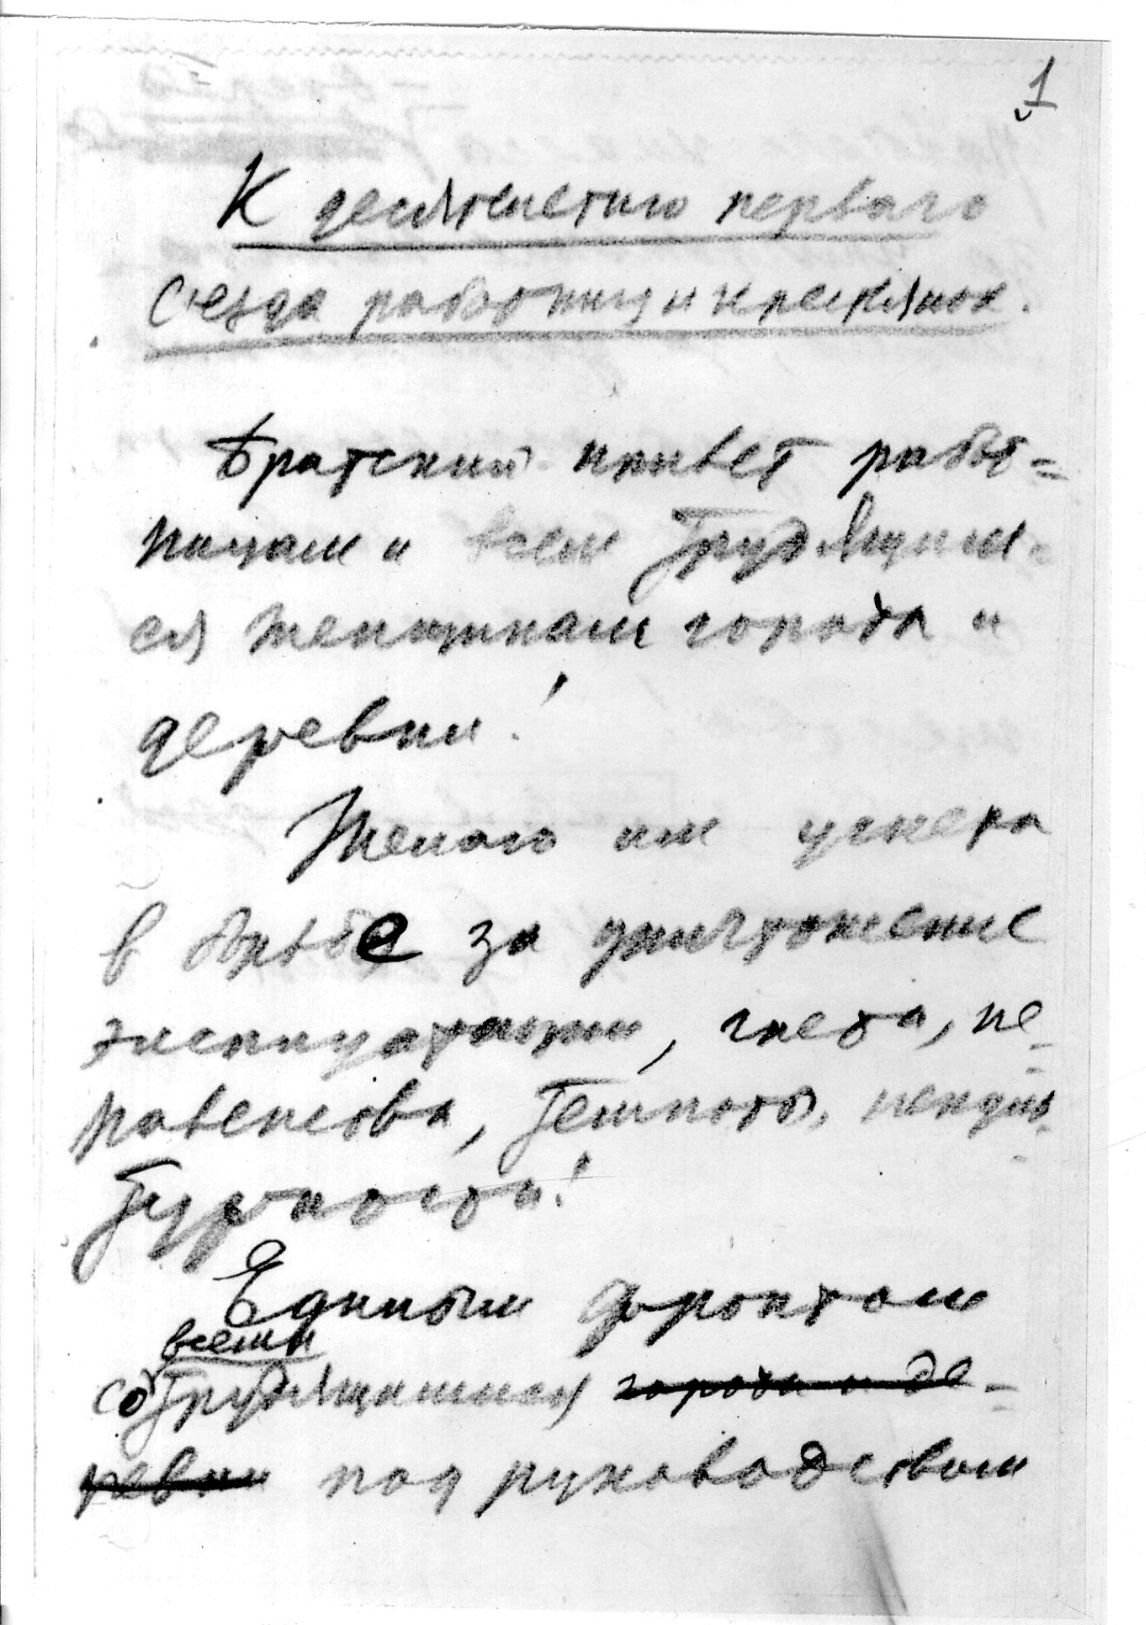 1
К десятилетию первого
съезда работниц и крестьянок.
Братский привет работ=
ницам и всем трудящим-
ся женщинам города и
деревни!
Желаю им успеха
в борьбе за уничтожение
эксплуатации, гнета, не-
равенства, темноты, некуль-
турности!
Единым фронтом
всеми
со трудящимися города и де-
ревни под руководством